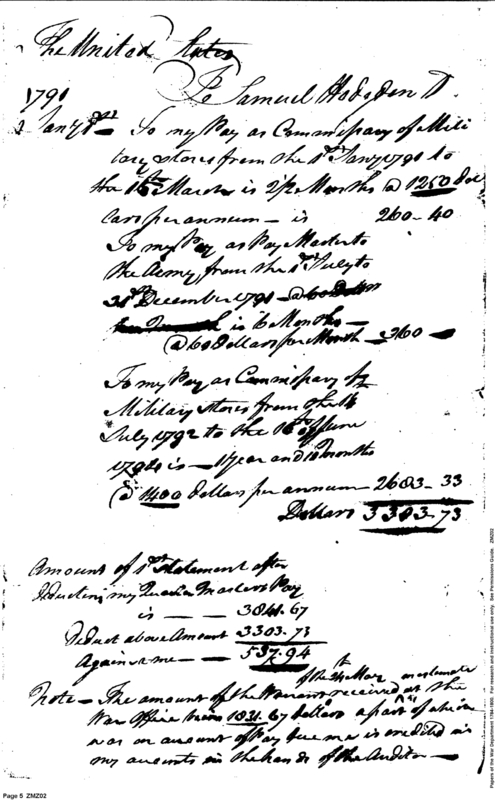 The United States
To Samuel Hodgdon Dr.
1791
Jany 1st — To my Pay as Commissary of Mili
tary stores from the 1st Jany 1791 to
the 16th March is 2½ Months @ 1250 dol
lars per annum — is 260-40
To my Pay as Pay Master to
the Army, from the 1st July to
31st December 1791 — @ 60 Dollars
is 6 Months —
@ 60 Dollars per Month — 360 —
To my Pay as Commissary of
Military stores from the 14
July 1792 to the 16th of June
1794 is — 1 year and 11 Months
@ 1400 dollars per annum — 2683-33
Dollars 3303-73
Amount of 1st Statement after
deducting my Quarter Masters Pay
is — — 3841.67
Deduct above Amount 3303.73
Against me — — 537.94
Note — The amount of the Warrant of the 24th May received at the
War Office being 1031.67 dollars a part of which
was on account of Pay due me is credited in
my accounts in the hands of the Auditor —
Page 5 ZMZ02
Papers of the War Department 1784-1800. For research and instructional use only. See Permissions Guide. ZMZ02